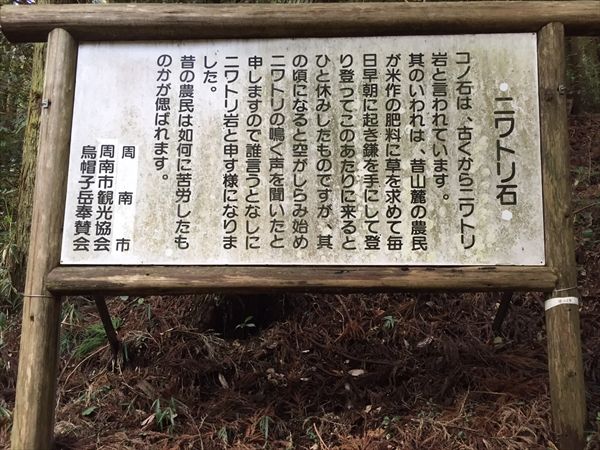 ・ニワトリ石・
コノ石は、古くからニワトリ
岩と言われています。
其のいわれは、昔山麓の農民
が米作の肥料に草を求めて毎
日早朝に起き鎌を手にして登
り登ってこのあたりに来ると
ひと休みしたものですが、其
の頃になると空がしらみ始め
ニワトリの鳴く声を聞いたと
申しますので誰言うとなしに
ニワトリ岩と申す様になりま
した。
昔の農民は如何に苦労したも
のかが偲ばれます。
周南市
周南市観光協会
烏帽子岳奉賛会